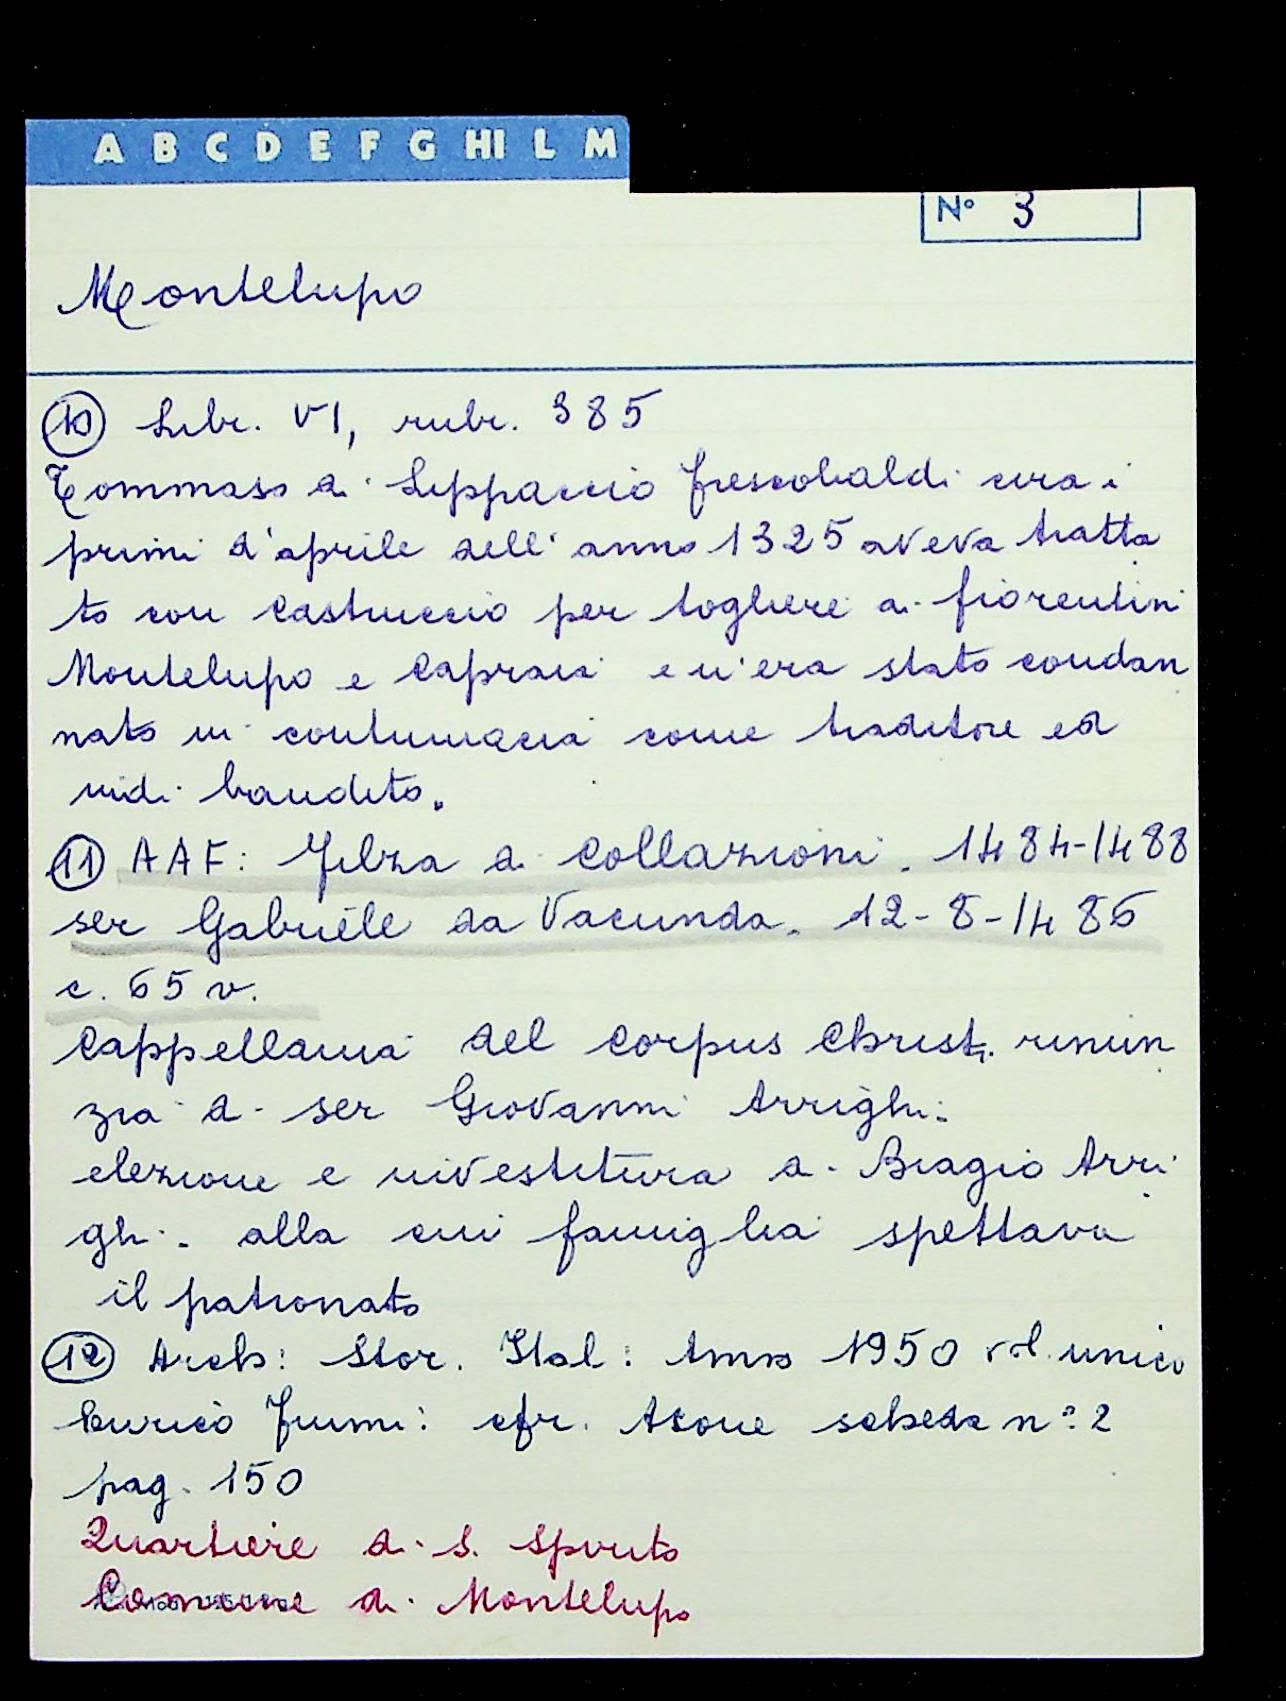 A B C D E F G HI L M
N° 3
Montelupo
10 Libr. VI, rubr. 385
Tommaso di Lippaccio Frescobaldi circa i
primi d'aprile dell'anno 1325 aveva tratta
to con Castruccio per togliere ai fiorentini
Montelupo e Capraia e n'era stato condan
nato in contumacia come traditore ed
indi bandito.
11 AAF: Filza di Collazioni. 1484-1488
ser Gabriele da Vacunda. 12-8-1486
c. 65 v.
Cappellania del Corpus Christi rinun
zia di ser Giovanni Arrighi:
elezione e investitura di Biagio Arri
ghi. alla cui famiglia spettava
il patronato
12 Arch: Stor. Ital: Anno 1950 vol. unico
Enrico Fiumi: cfr. Scheda n° 2
pag. 150
Quartiere di S. Spirito
Comune di Montelupo